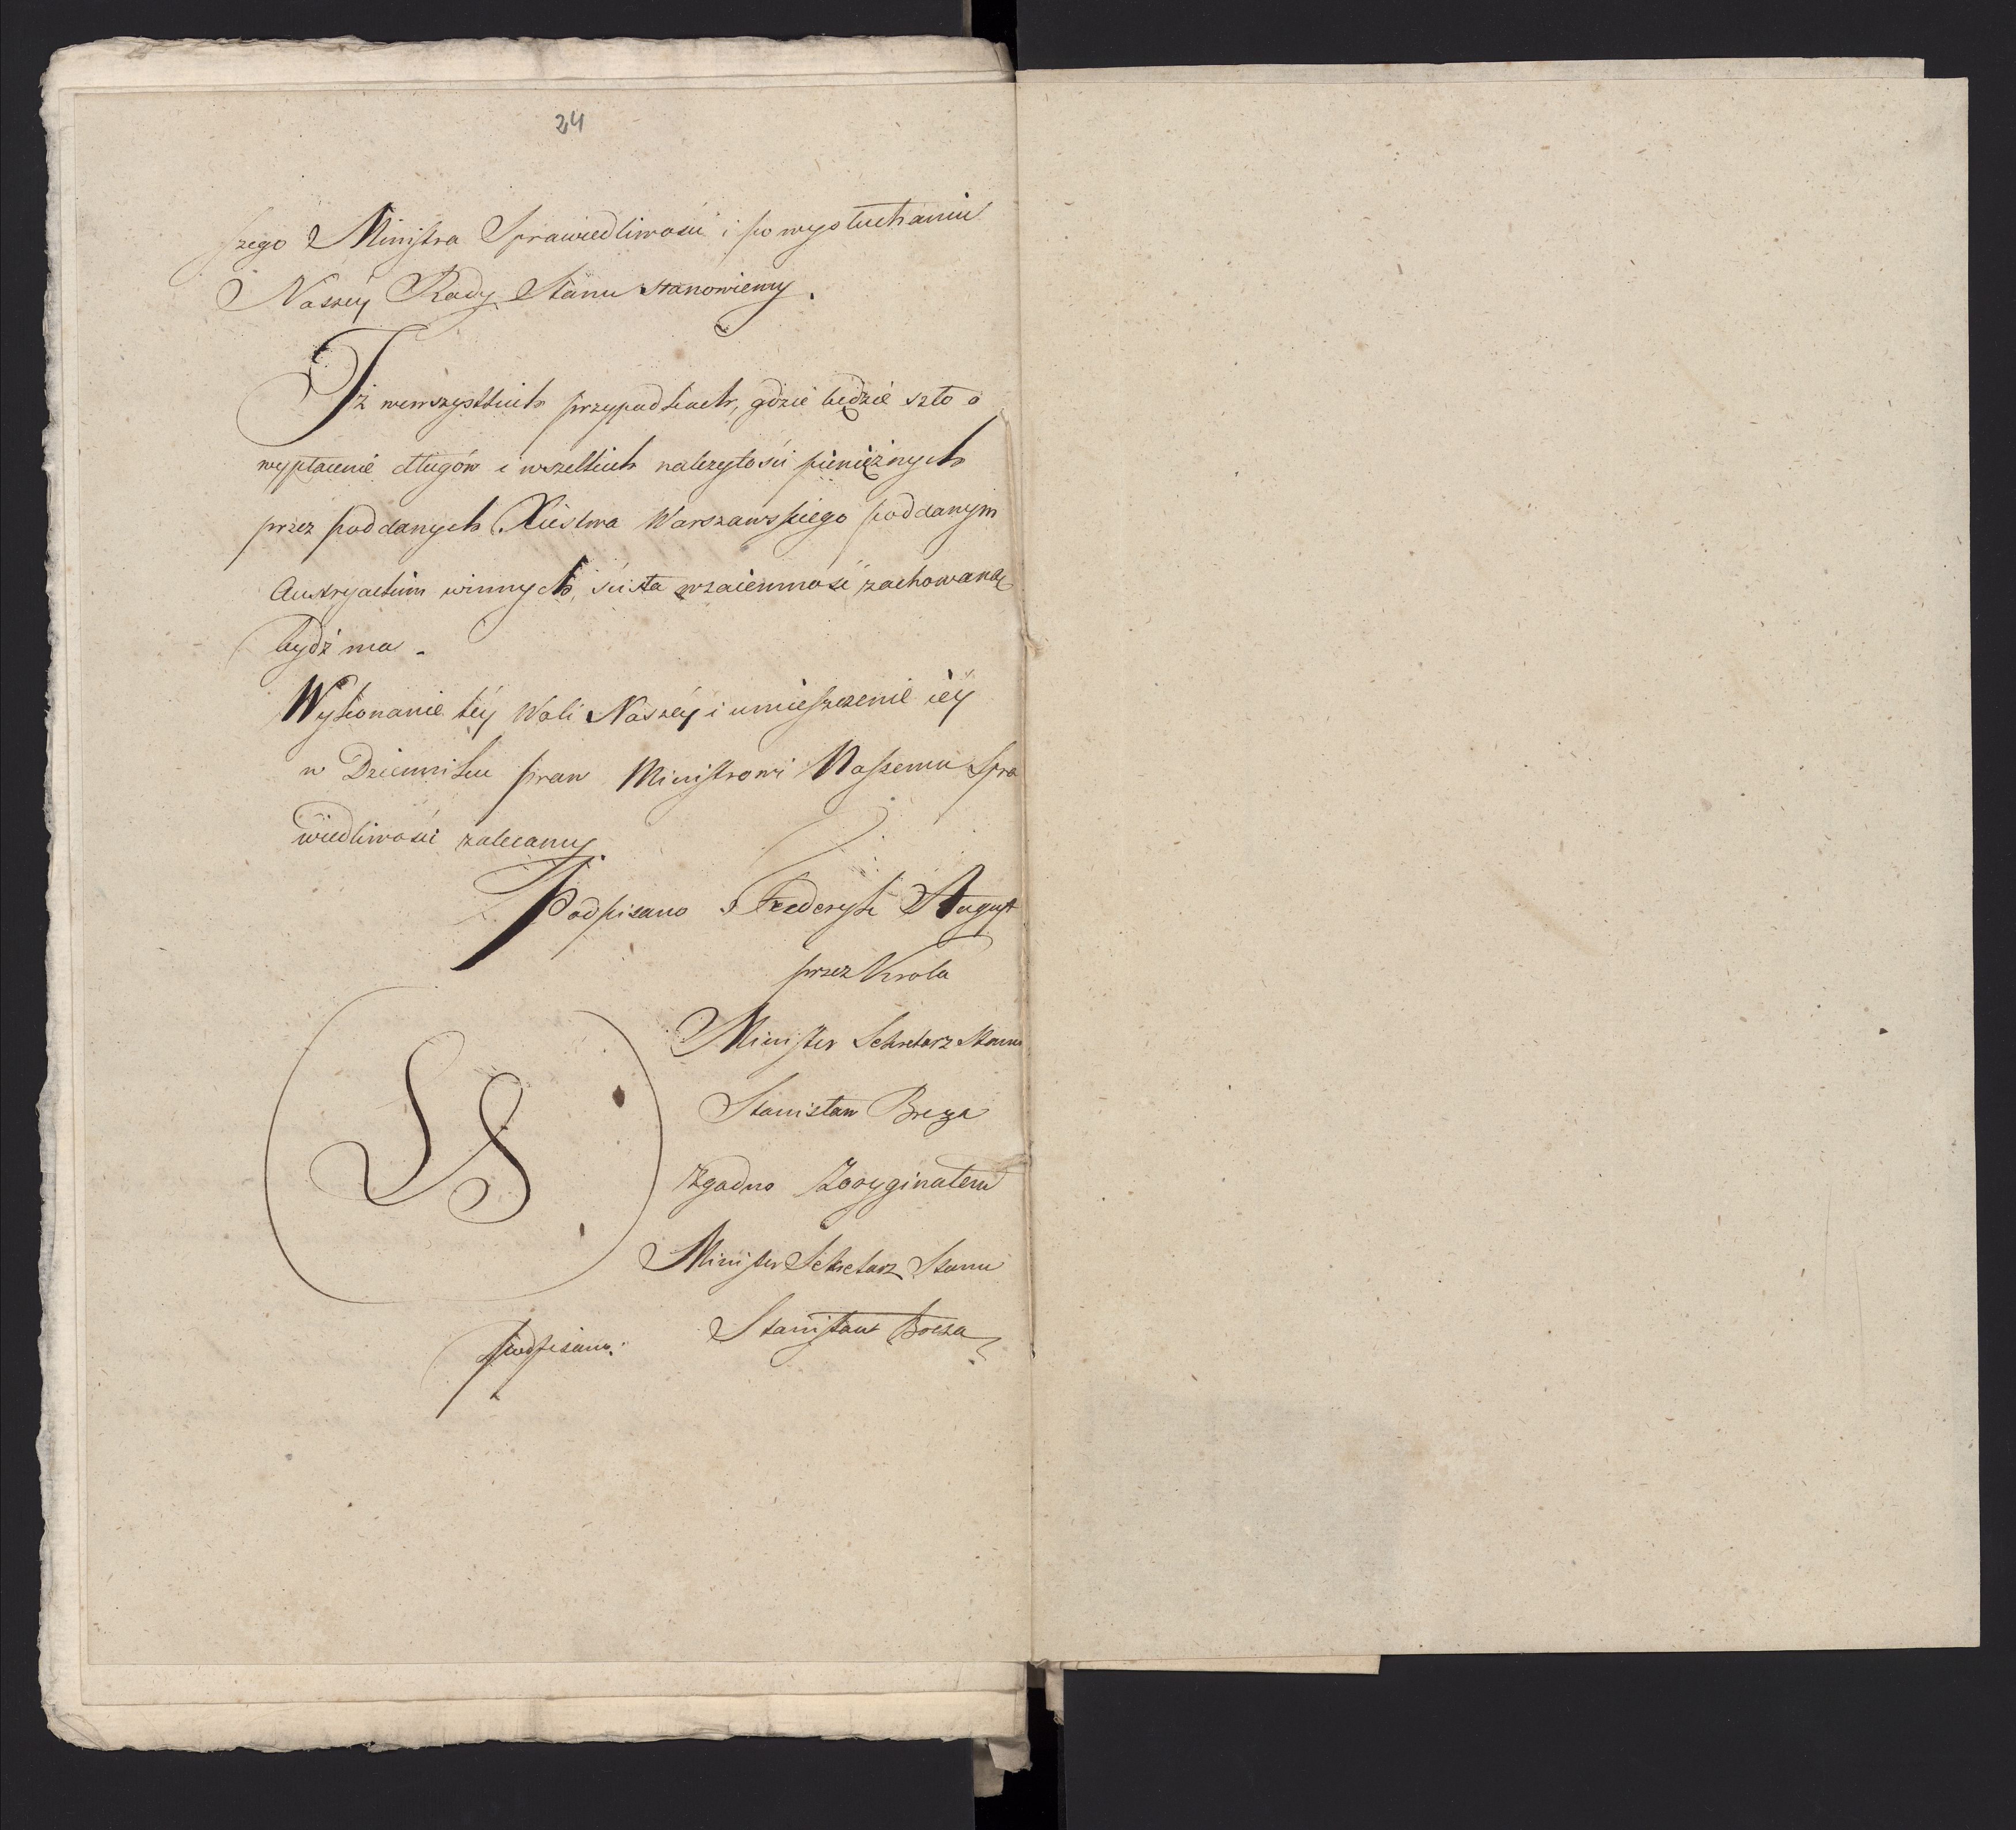 24
szego Ministra Sprawiedliwości i po wysłuchaniu
Naszey Rady Stanu stanowiemy.
Iż wewszystkich przypadkach, gdzie będzie szło o
wypłacenie długów i wszelkich należytości pieniężnych
przez poddanych Xięstwa Warszawskiego poddanym
Austryackim winnych, ścisła wzaiemność zachowaną
bydź ma.
Wykonanie téy Woli Naszéy i umieszczenie iéy
w Dzienniku praw Ministrowi Naszemu Spra
wiedliwości zalecamy
Podpisano Frederyk August
przez Krola
Minister Sekretarz Stanu
Stanisław Breza
zgodno z Oryginałem
Minister Sekretarz Stanu
podpisano. Stanisław Breza